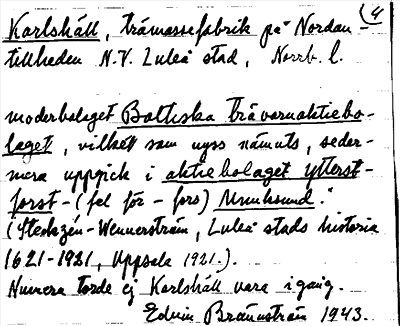 (4
Karlshäll, trämassefabrik på Nordan-
tillheden N.V. Luleå stad, Norrb. l.
moderbolaget Baltiska trävaruaktiebo-
laget, vilket som nyss nämnts, seder-
mera uppgick i aktiebolaget Ytterst-
forst-(fel för -fors) Munksund."
(Steckzén-Wennerström, Luleå stads historia
1621-1921, Uppsala 1921.).
Numera torde ej Karlshäll vara igång.
Edvin Brännström 1943.